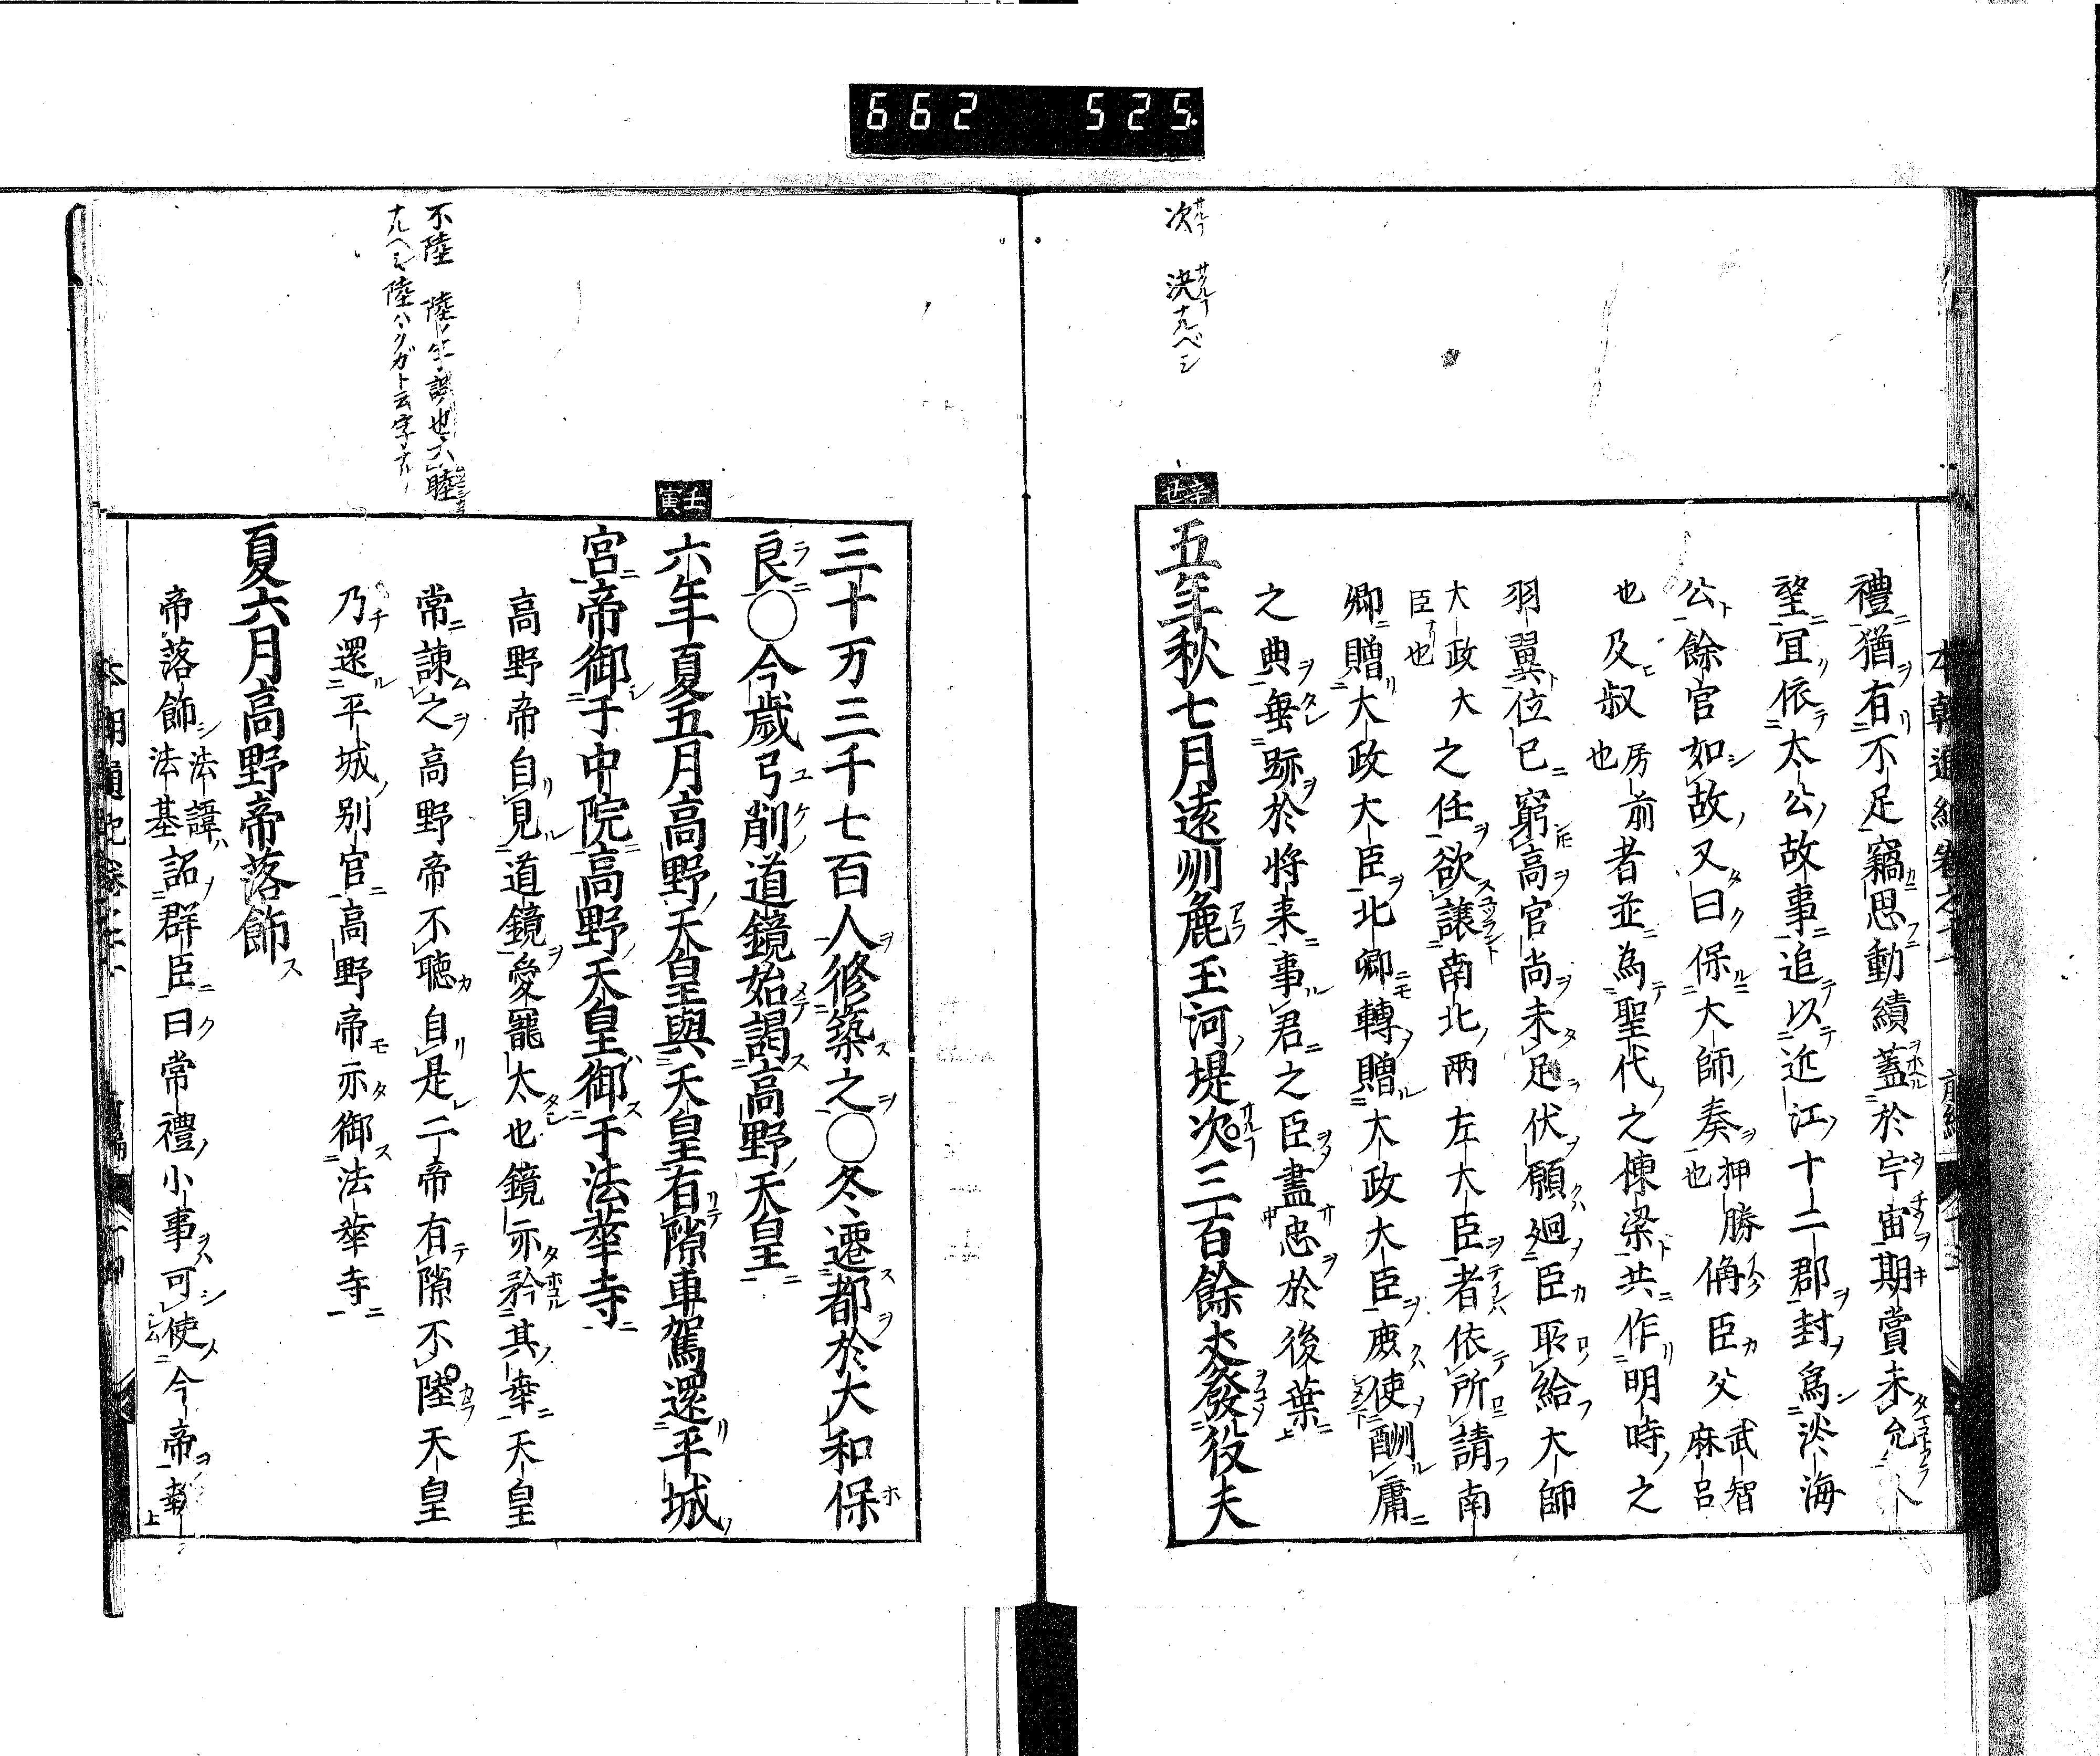 662 525
次 決ナルベシ
辛丑
禮猶有不足竊思動績蓋於宇宙期賞未允人
望宜依太公故事追以近江十二郡封爲淡海
公餘官如故又曰保大師奏押勝也偁臣父武智麻呂
也及叔房前也者並為聖代之棟梁共作明時之
羽翼位已窮高官尚未足伏願廻臣所給大師
大政大臣也之任欲讓南北兩左大臣者依所請南
卿贈大政大臣北卿轉贈大政大臣庶使酬庸
之典垂跡於将来事君之臣盡忠於後葉
五年秋七月遠州麁玉河堤次三百餘丈發役夫
不陸 陸ノ字誤也 睦
ナルヘシ陸ハクガト云字ナリ
壬寅
三十万三千七百人修築之○冬遷都於大和保
良○今歳弓削道鏡始謁高野天皇
六年夏五月高野天皇與天皇有隙車駕還平城
宮帝御于中院高野天皇御于法華寺
高野帝自見道鏡愛寵太也鏡亦矜其幸天皇
常諌之高野帝不聴自是二帝有隙不陸天皇
乃還平城別宮高野帝亦御法華寺
夏六月高野帝落飾
帝落飾法諱法基詔群臣曰常禮小事可使今帝